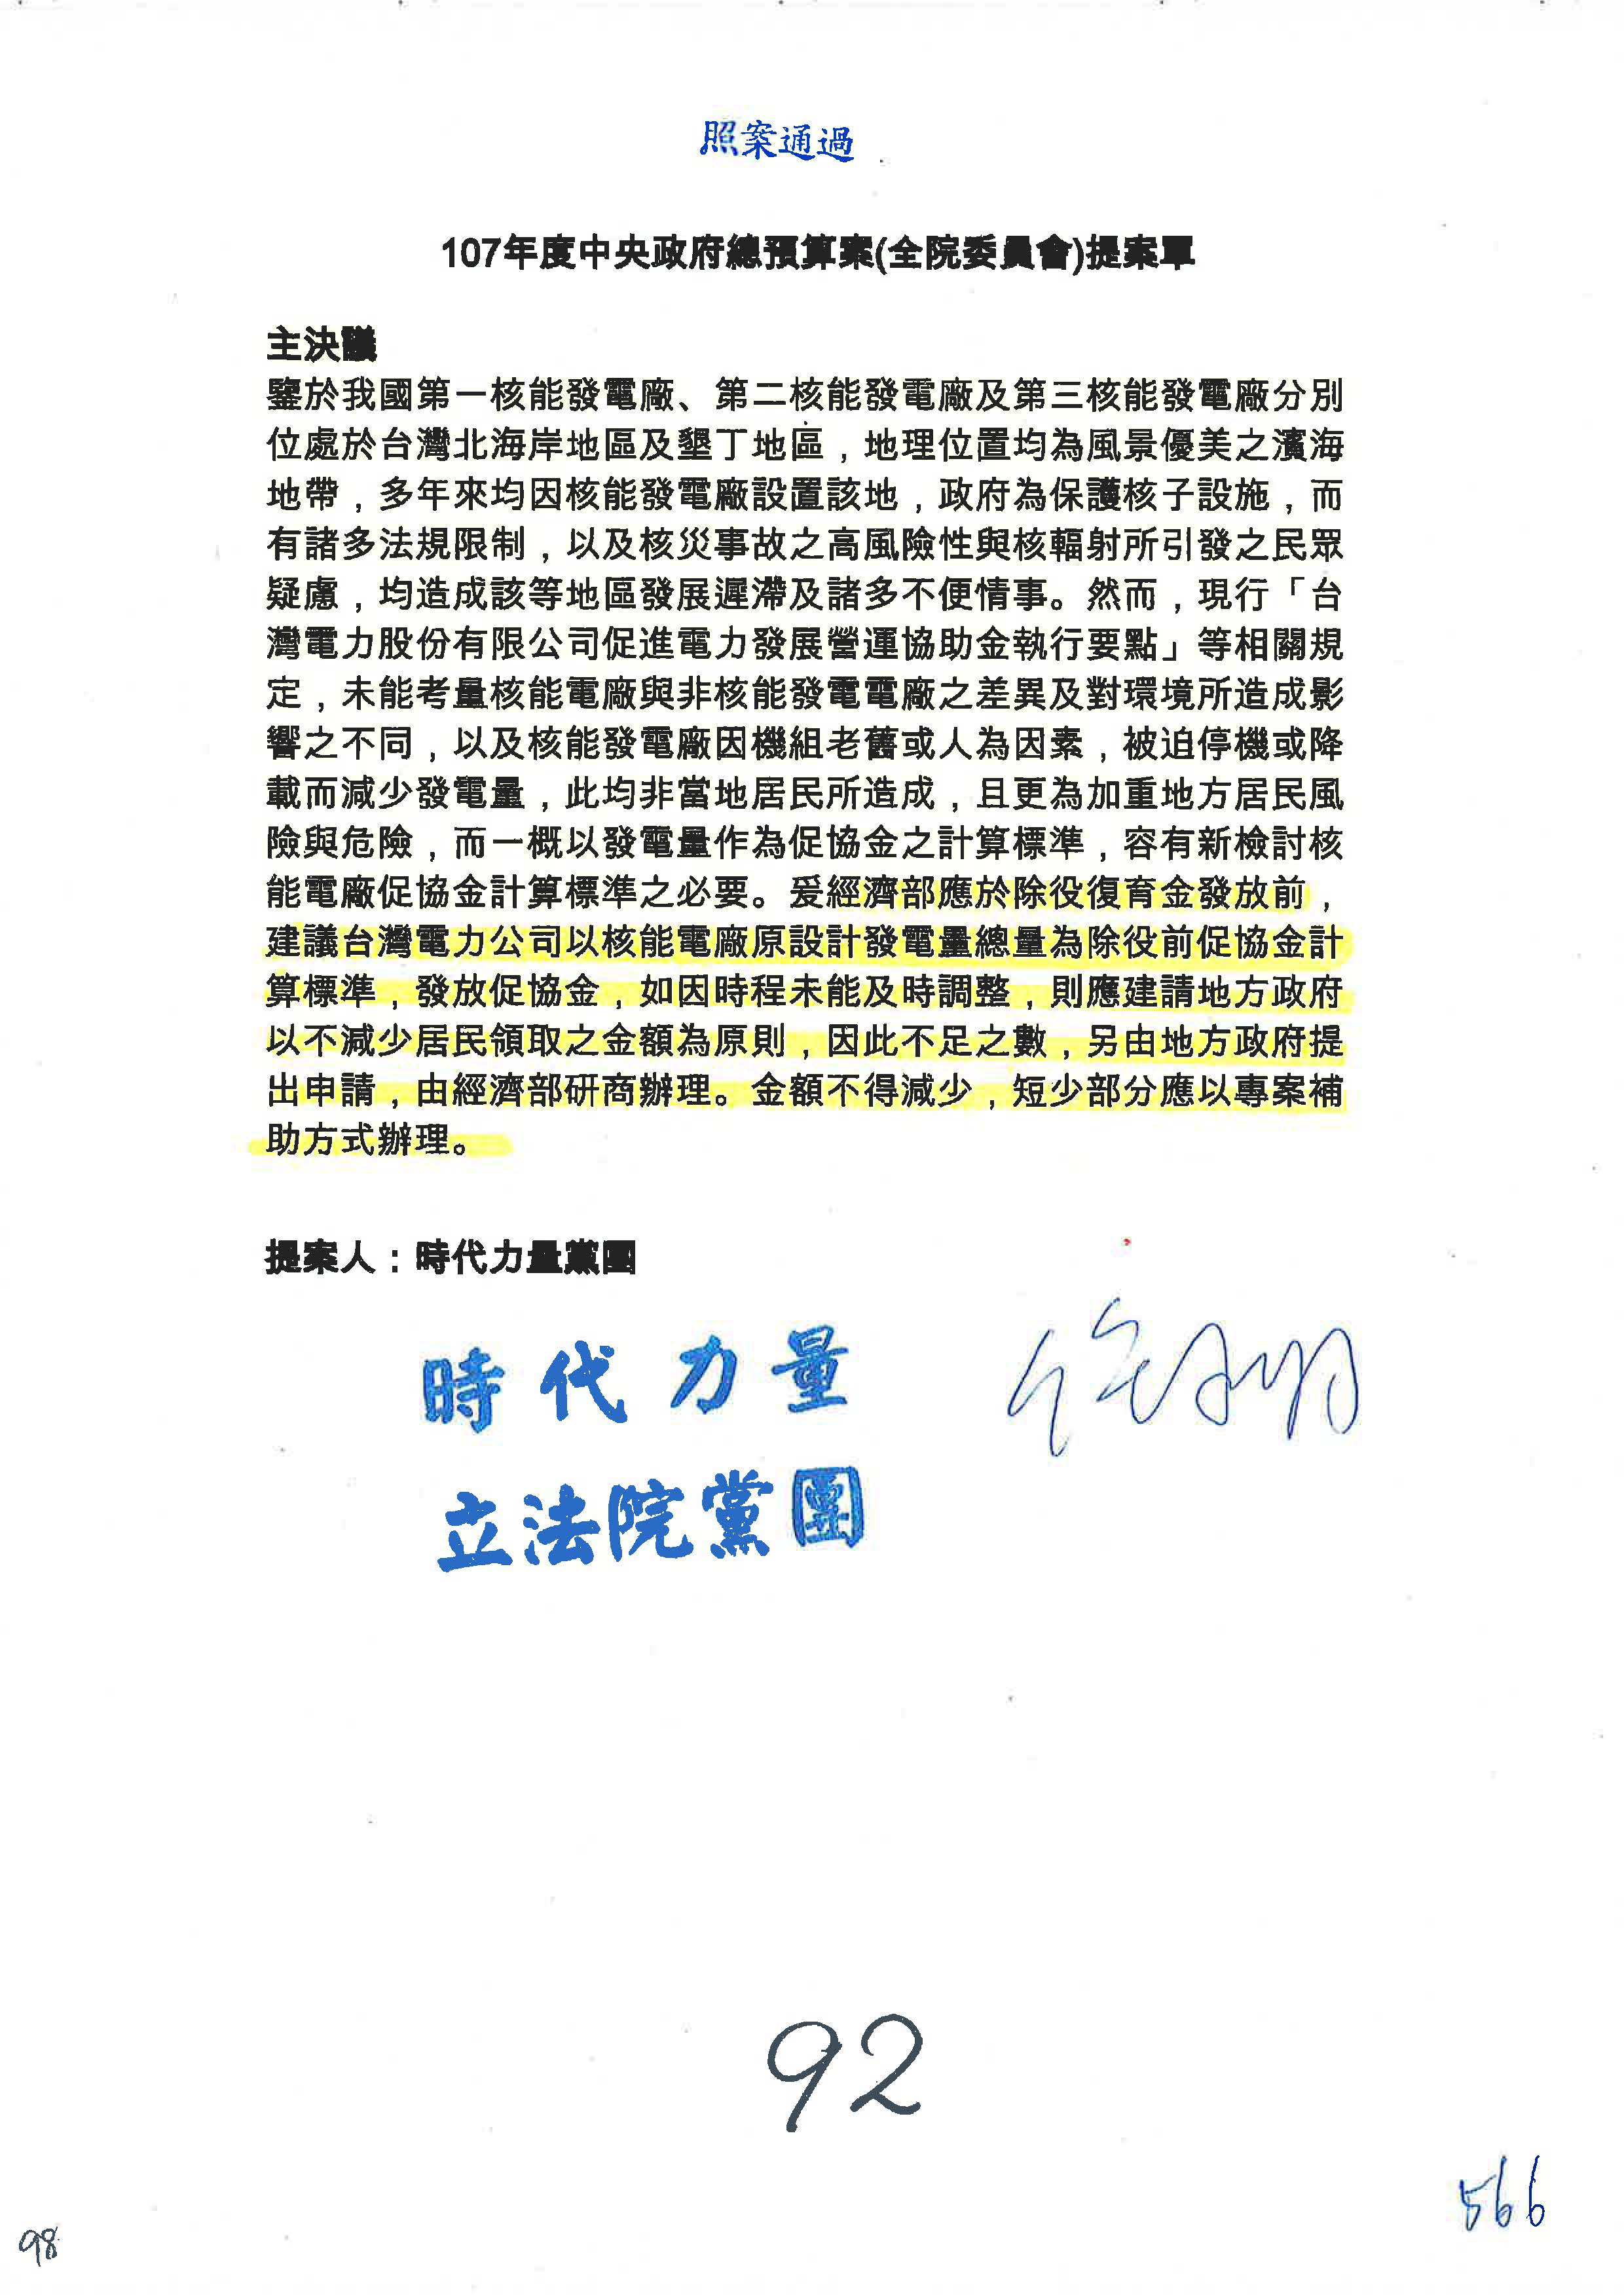 照案通過
107年度中央政府總預算案(全院委員會)提案單
主決議
鑒於我國第一核能發電廠、第二核能發電廠及第三核能發電廠分別
位處於台灣北海岸地區及墾丁地區，地理位置均為風景優美之濱海
地帶，多年來均因核能發電廠設置該地，政府為保護核子設施，而
有諸多法規限制，以及核災事故之高風險性與核輻射所引發之民眾
疑慮，均造成該等地區發展遲滯及諸多不便情事。然而，現行「台
灣電力股份有限公司促進電力發展營運協助金執行要點」等相關規
定，未能考量核能電廠與非核能發電電廠之差異及對環境所造成影
響之不同，以及核能發電廠因機組老舊或人為因素，被迫停機或降
載而減少發電量，此均非當地居民所造成，且更為加重地方居民風
險與危險，而一概以發電量作為促協金之計算標準，容有新檢討核
能電廠促協金計算標準之必要。爰經濟部應於除役復育金發放前，
建議台灣電力公司以核能電廠原設計發電量總量為除役前促協金計
算標準，發放促協金，如因時程未能及時調整，則應建請地方政府
以不減少居民領取之金額為原則，因此不足之數，另由地方政府提
出申請，由經濟部研商辦理。金額不得減少，短少部分應以專案補
助方式辦理。
提案人：時代力量黨團
時代力量
立法院黨團
92
566
98